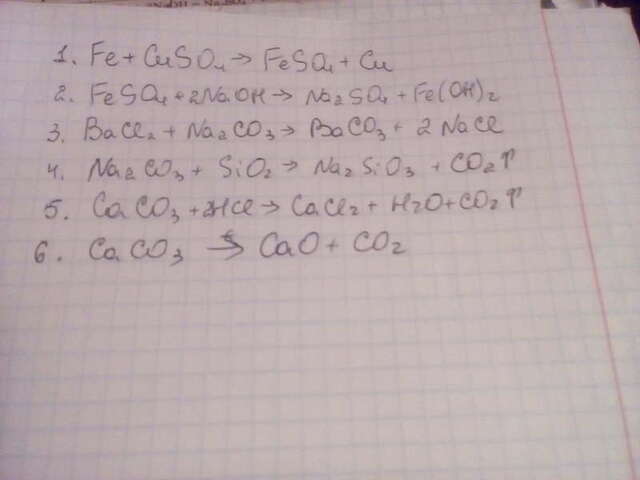 1. Fe + CuSO₄ → FeSO₄ + Cu
2. FeSO₄ + 2NaOH → Na₂SO₄ + Fe(OH)₂
3. BaCl₂ + Na₂CO₃ → BaCO₃ + 2 NaCl
4. Na₂CO₃ + SiO₂ → Na₂SiO₃ + CO₂↑
5. CaCO₃ + 2HCl → CaCl₂ + H₂O + CO₂↑
6. CaCO₃ → CaO + CO₂